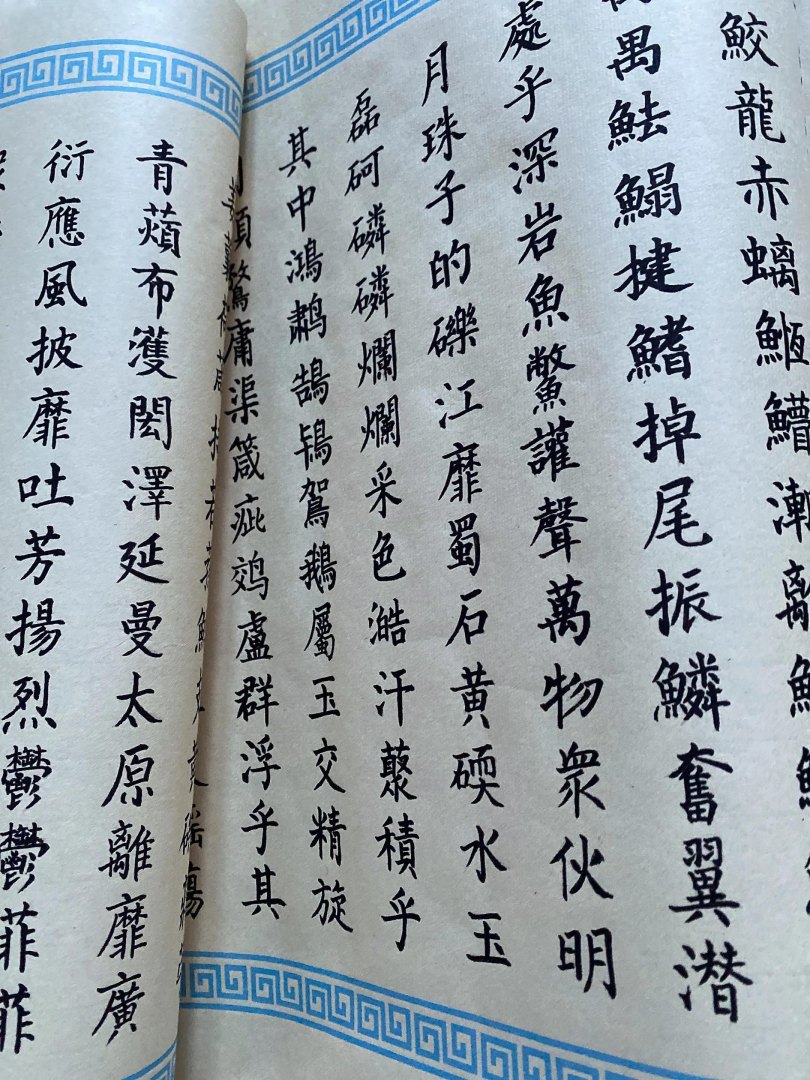 鮫龍赤螭䱭䲛漸離
禺魼鰨揵鰭掉尾振鱗奮翼潜
處乎深岩魚鱉讙聲萬物眾伙明
月珠子的礫江靡蜀石黃碝水玉
磊砢磷磷爛爛采色澔汗藂積乎
其中鴻鷫鵠鴇鴐鵝屬玉交精旋
煩鶩庸渠箴疵䴔盧群浮乎其
青薠布濩閎澤延曼太原離靡廣
衍應風披靡吐芳揚烈鬱鬱菲菲